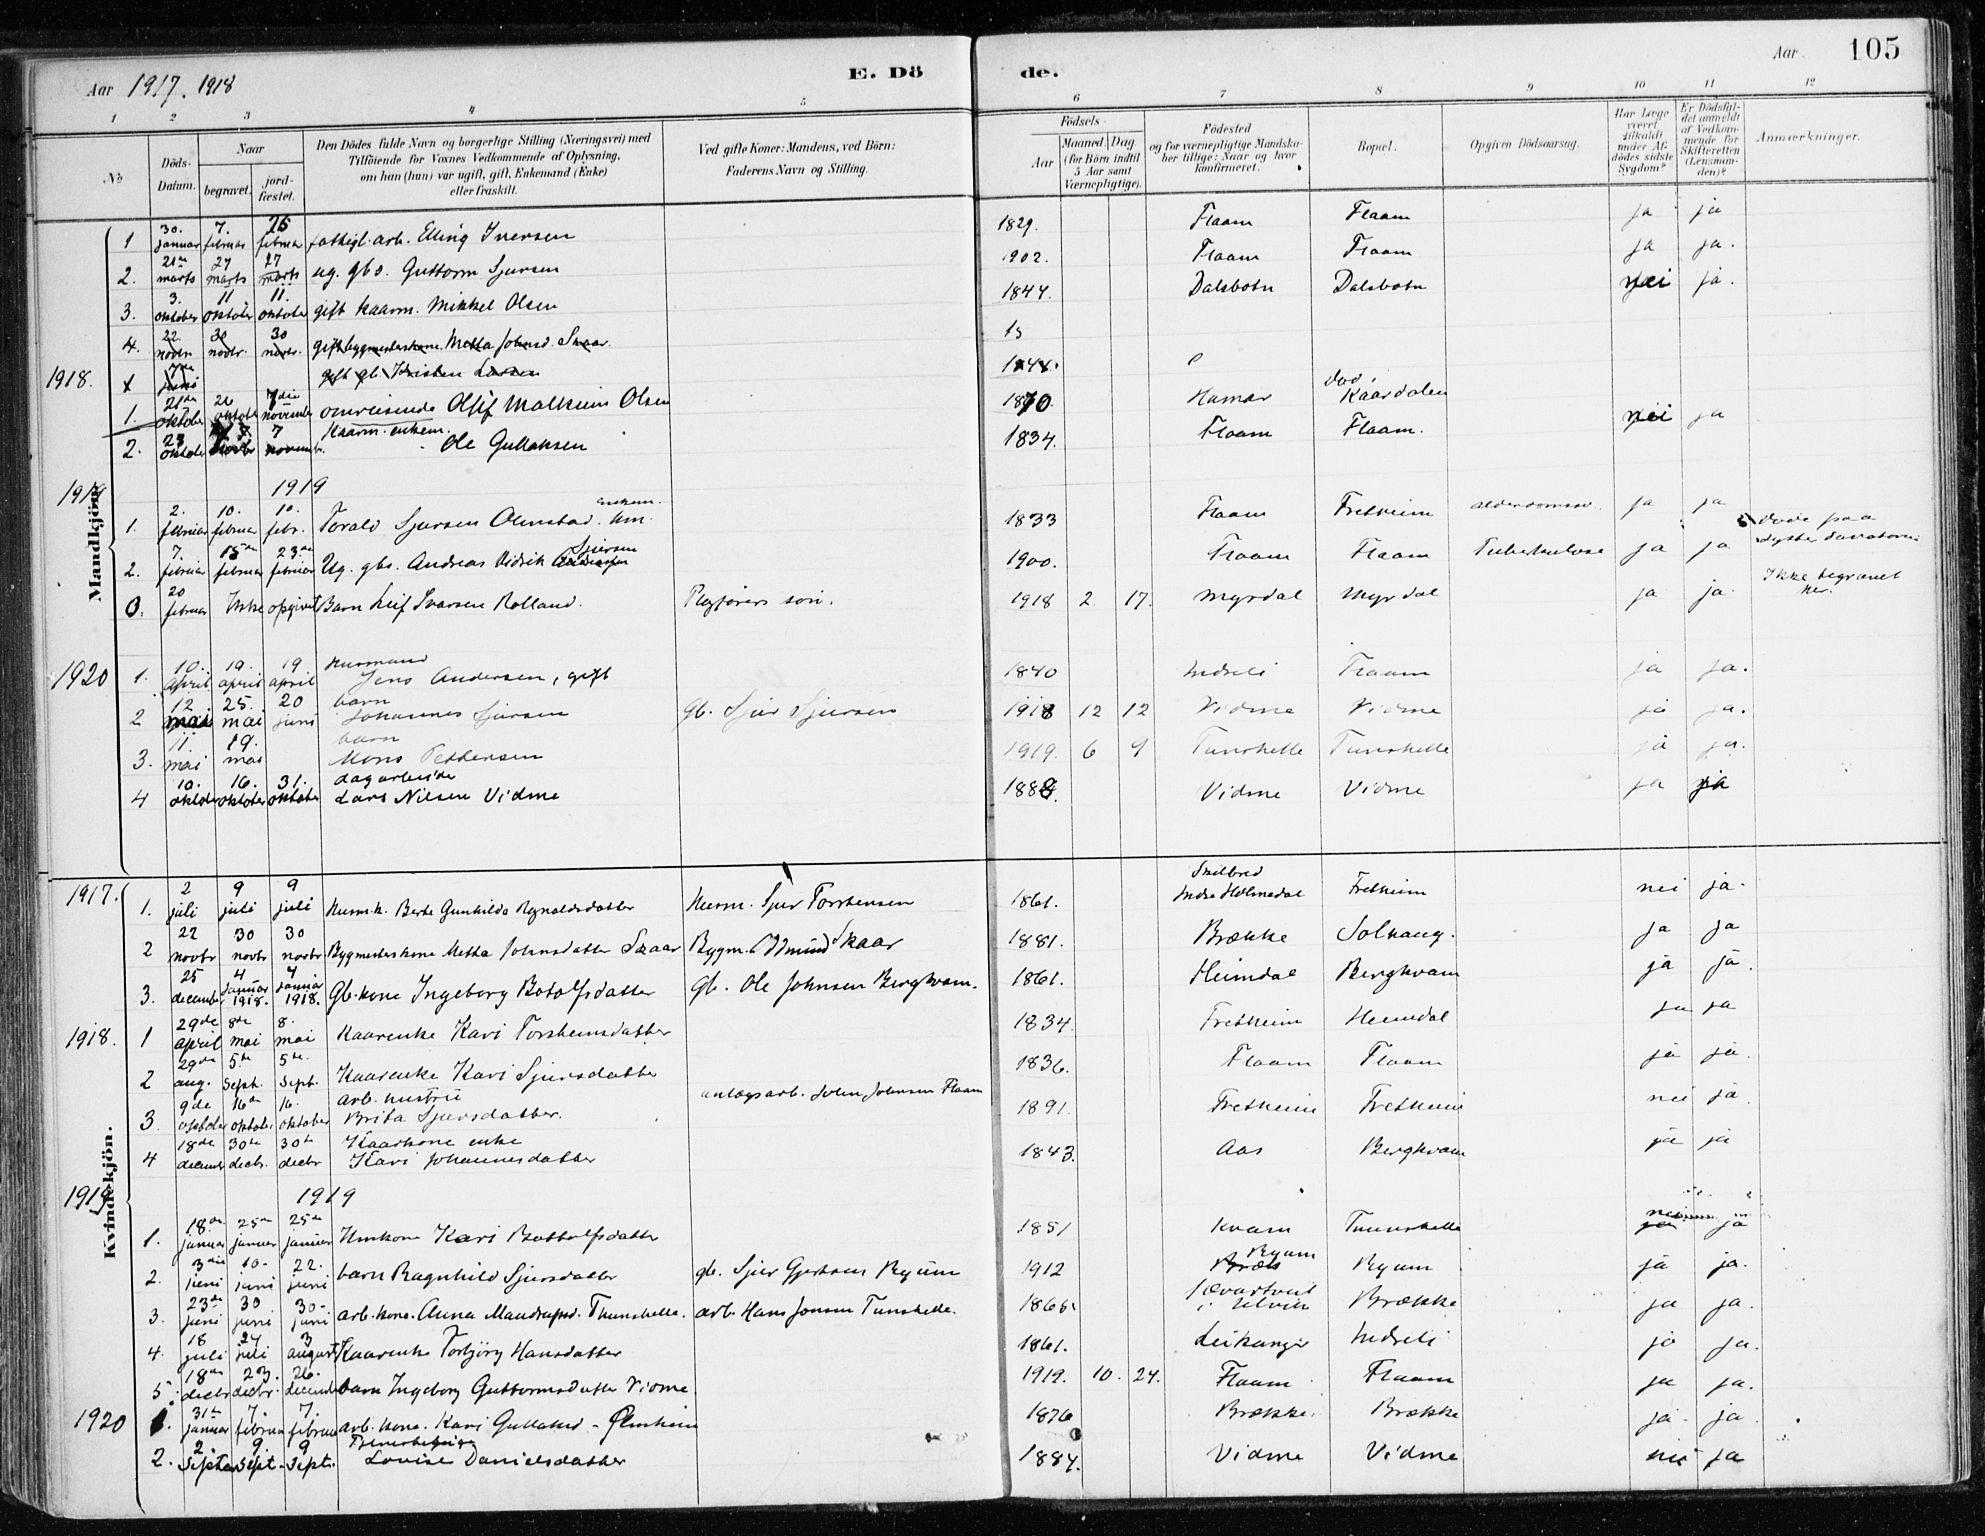 Aar 1917. 1918 E. Dö de. Aar. 105
1 2 3 4 5 6 7 8 9 10 11 12
No
Döds-Datum.
Naar
begravet.
jord-fæstet.
Den Dödes fulde Navn og borgerlige Stilling (Næringsvei) med
Tilföiende for Voxnes Vedkommende af Oplysning,
om han (hun) var ugift, gift, Enkemand (Enke)
eller fraskilt.
Ved gifte Koner: Mandens, ved Börn:
Faderens Navn og Stilling.
Födsels-
Aar
Maaned. Dag.
(for Börn indtil
5 Aar samt
Værnepligtige).
Födested
og for værnepligtige Mandska-
ber tillige: Naar og hvor
konfirmeret.
Bopæl.
Opgiven Dödsaarsag.
Har Læge
været
tilkaldt
under Af-
dödes sidste
Sygdom?
Er Dödsfal-
det anmeldt
af Vedkom-
mende for
Skifteretten
(Lensman-
den)?
Anmærkninger.
Mandkjön.
1 30. januar 7. februar 15 februar fattigl. arb. Elling Iversen 1829. Flaam Flaam ja ja
2. 21de marts 27 marts 27 marts ug. gbs. Guttorm Sjursen 1902. Flaam Flaam ja ja.
3. 3. oktober 11 oktober 11. oktober gift kaarm. Mikkel Olsen 1844. Dalsbotn Dalsbotn nei ja.
4. 22 novbr 30 novbr. 30 novbr. gift bygmesterkone Metta Johnsd. Skaar. 18
1918. 1 7de juni gift gb. Kristen Larsen 1844.
1. 21de oktober 26 oktober 7die november omreisende Olaf Malkuim Olsen 1870. Hamar død, Kaardalen
2. 23 oktober 7 novbr 7 novembr. Kaarm. enkem. Ole Gullaksen 1834. Flaam Flaam. nei ja
1919 1919
1. 2. februar 10. februar 10. febr. Torald Sjursen Olmstad. enkem. hm. 1833 Flaam Fretheim alderdomssv. ja ja
2. 7. februar 15de februar 23de februar Ug. gbs. Andreas Vidrik Sjursen 1900. Flaam Flaam Tuberkulose ja ja døde paa Lyster Sanatorium
0. 20 februar Ikke opgivet Barn Leif Ivarsen Rolland. søn. 1918 2 17. Myrdal Myrdal ja ja. Ikke begravet her.
1920 1. 10. april 19. april 19 april Husmand Jens Andersen, gift 1840 Indreli Flaam ja ja.
2 12 mai 25. mai 20 juni barn Johannes Sjursen gb. Sjur Sjursen 1918 12 12 Vidme Vidme ja ja.
3. 11. mai 19. mai barn Mons Pettersen 1919. 6 9 Tunshelle Tunshelle ja ja.
4 10. oktober 16. oktober 31. oktober dagarbeider Lars Nilsen Vidme 1888. Vidme Vidme ja ja
Kvindekjön.
1917. 1. 2 juli 9 juli 9 juli Husm.k. Berte Gunhilda Rognaldsdatter Husm. Sjur Torsteinsen 1861. Indre Holmedal Fretheim nei ja.
2 22 novbr 30 novbr 30 novbr Bygmesterkone Metta Johnsdatter Skaar Bygm. Oddmund Skaar 1881. Brække Solhaug. ja ja
3. 25 december 4 januar 1918. 4 januar 1918. Gb. kone Ingeborg Botolfsdatter Gb. Ole Johnsen Berghvam. 1861. Heimdal Berghvam ja ja.
1918. 1 29de april 8de mai 8. mai Kaarenke Kari Torsteinsdatter 1834. Fretheim Heimdal ja ja
2 29de aug. 5te sept. 5te sept. Kaarenke Kari Sjursdatter 1836. Flaam Flaam ja ja.
3. 9de oktober 16de oktober 16. oktober arb. hustru Brita Sjursdatter. anlægsarb. John Johnsen Flaam 1891. Fretheim Fretheim nei ja.
4 18de december 30te decbr. 30te decbr Kaarkone enke Kari Johannesdatter 1843. Aas Berghvam ja ja
1919 1919
1. 18de januar 25de januar 25de januar Hmkone Kari Bottolfsdatter 1851 Kvam Tunshelle nei ja
2. 3die juni 10. juni 22. juni barn Ragnhild Sjursdatter gb. Sjur Gjertsen Ryum 1912 Ryum Ryum ja ja.
3. 23de juni 30 juni 30. juni arb. kone. Anna Mandrupsd. Thunshelle. arb. Hans Jonsen Tunshelle. 1865. i Ulvik Brække ja ja.
4. 18 juli 27 juli 3 august Kaarenke Torbjörg Hansdatter 1861. Leikanger Indreli ja ja.
5. 18de decbr 23. decbr. 26. december barn Ingeborg Guttormsdatter Vidme 1919. 10. 24. Flaam Flaam ja ja.
1920 1. 31te januar 7. februar 7. februar arb. kone. Kari Gullaksd. 1876 Brække. Brække ja. ja.
2. 2. septem 9. sept. 9 sept. Lovise Danielsdatter 1884. Vidme Vidme nei ja